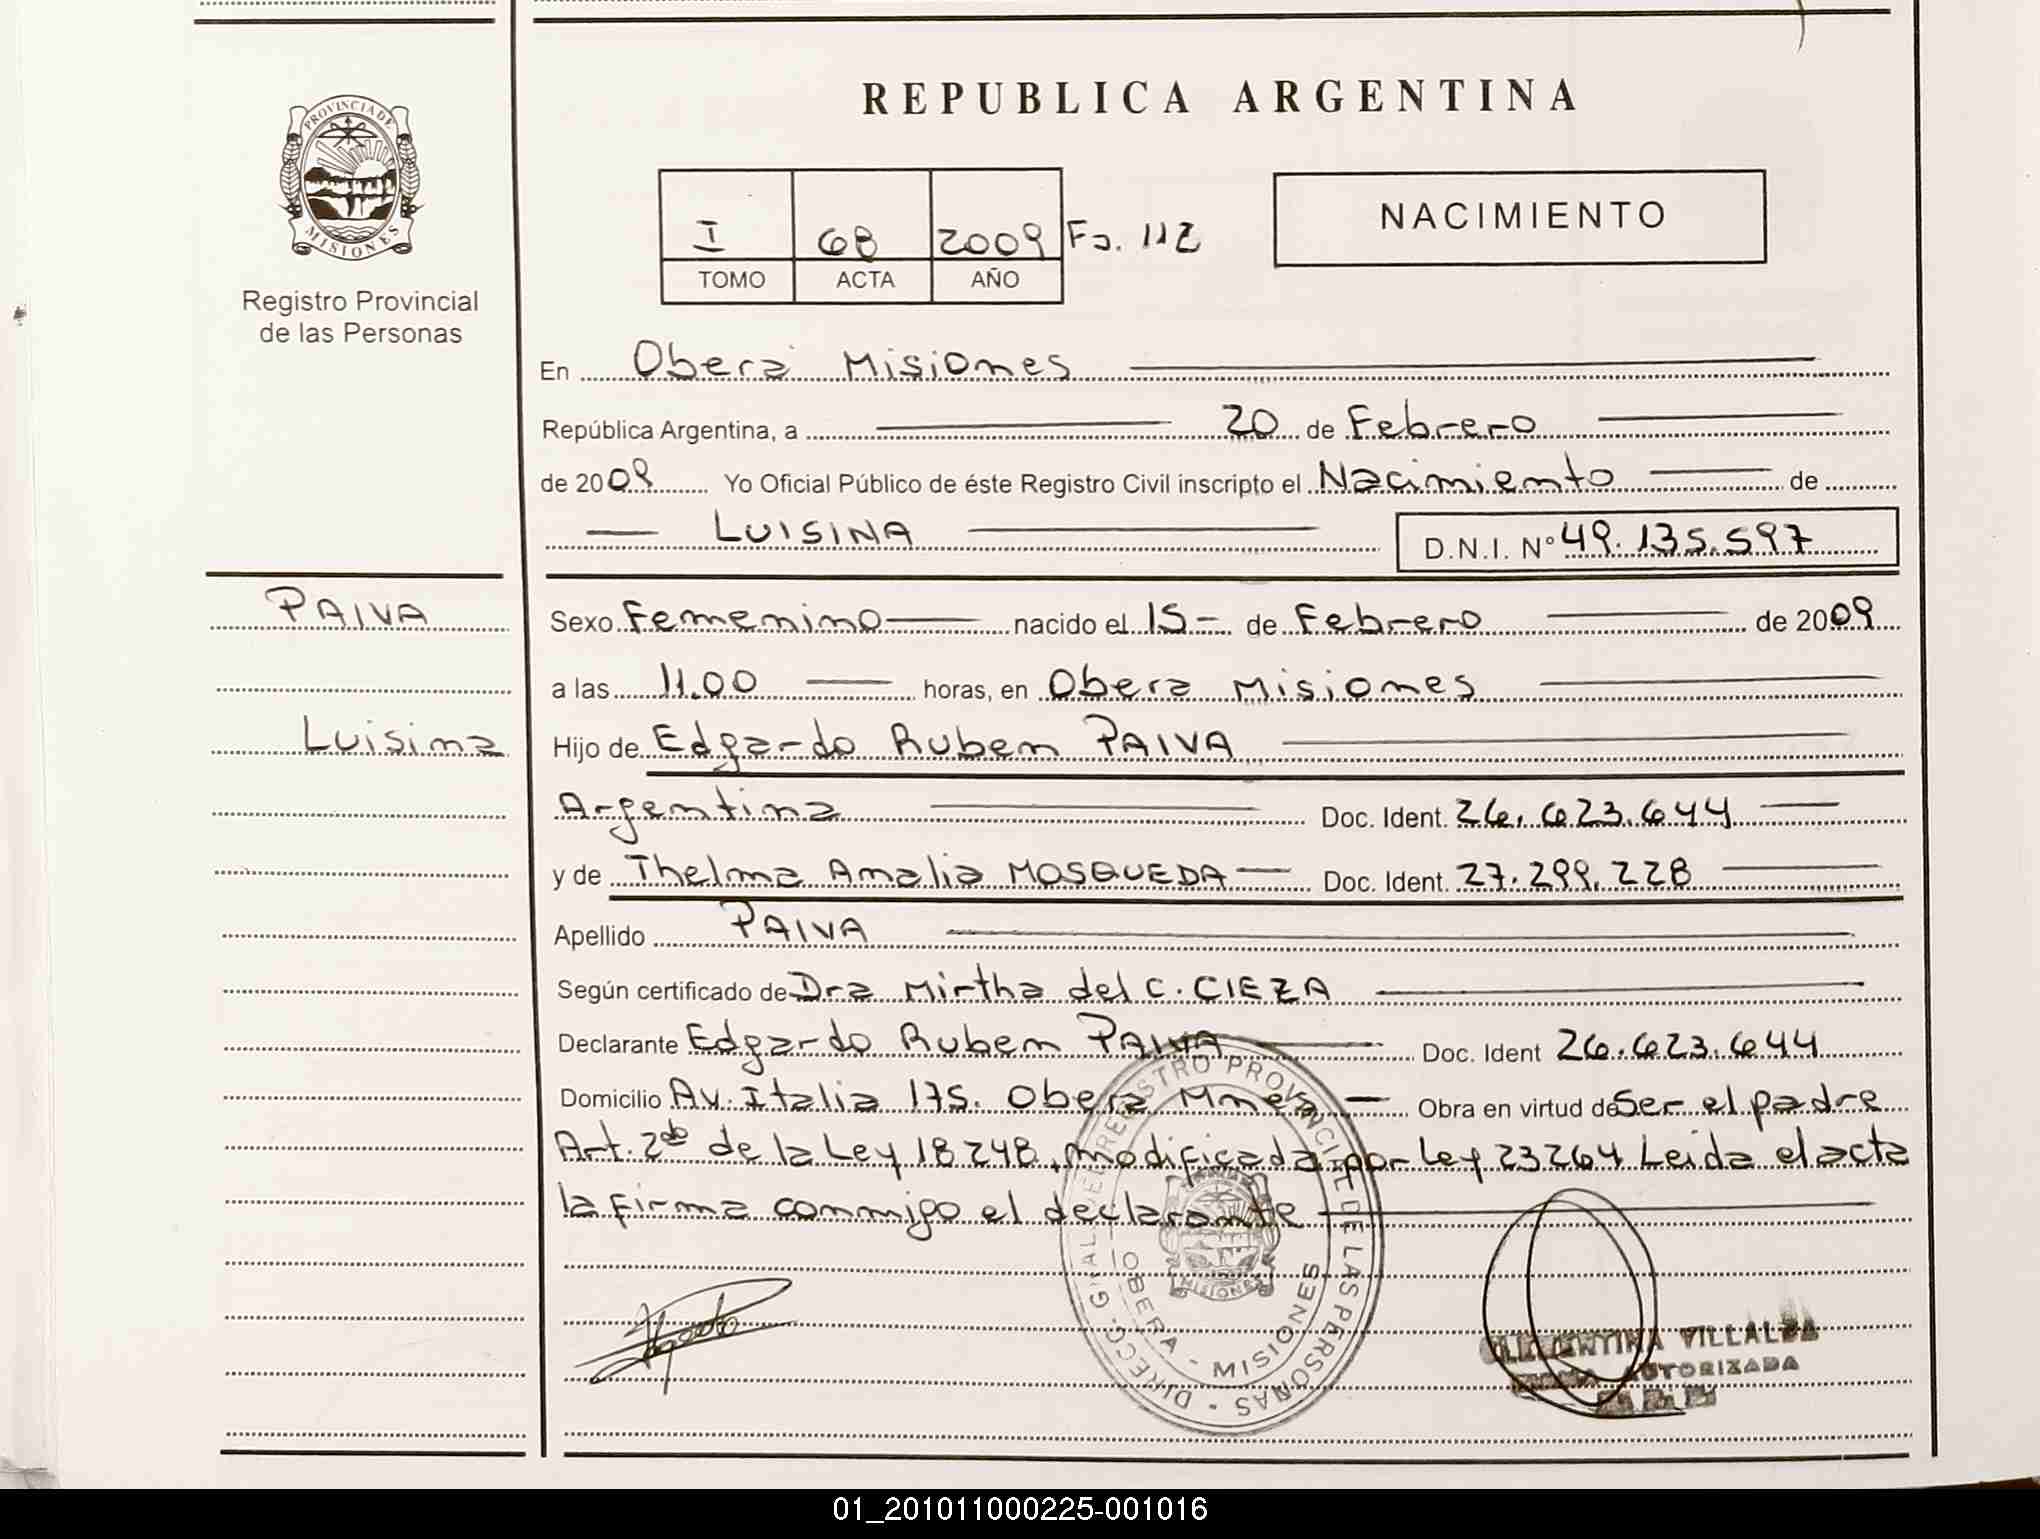 PROVINCIA DE
MISIONES
Registro Provincial
de las Personas
PAIVA
Luisina
REPUBLICA ARGENTINA
I 68 2009 Fo. 112
TOMO ACTA AÑO
NACIMIENTO
En Oberá Misiones
República Argentina, a 20 de Febrero
de 2009 Yo Oficial Público de éste Registro Civil inscripto el Nacimiento de
LUISINA D.N.I. Nº 49.135.597
Sexo Femenino nacido el 15 - de Febrero de 2009
a las 11.00 horas, en Obera Misiones
Hijo de Edgardo Ruben PAIVA
Argentina Doc. Ident. 26.623.644
y de Thelma Amalia MOSQUEDA Doc. Ident. 27.299.228
Apellido PAIVA
Según certificado de Dra Mirtha del C. CIEZA
Declarante Edgardo Ruben PAIVA Doc. Ident 26.623.644
Domicilio Av. Italia 175. Obera Mnes, Obra en virtud de Ser el padre
Art. 2do de la Ley 18248, modificada por Ley 23264 Leida el acta
la firma conmigo el declarante
DIRECC. GRAL. DEL REGISTRO PROVINCIAL DE LAS PERSONAS
OBERA - MISIONES
MISIONES
CLEMENTINA VILLALBA
FIRMA AUTORIZADA
01_201011000225-001016